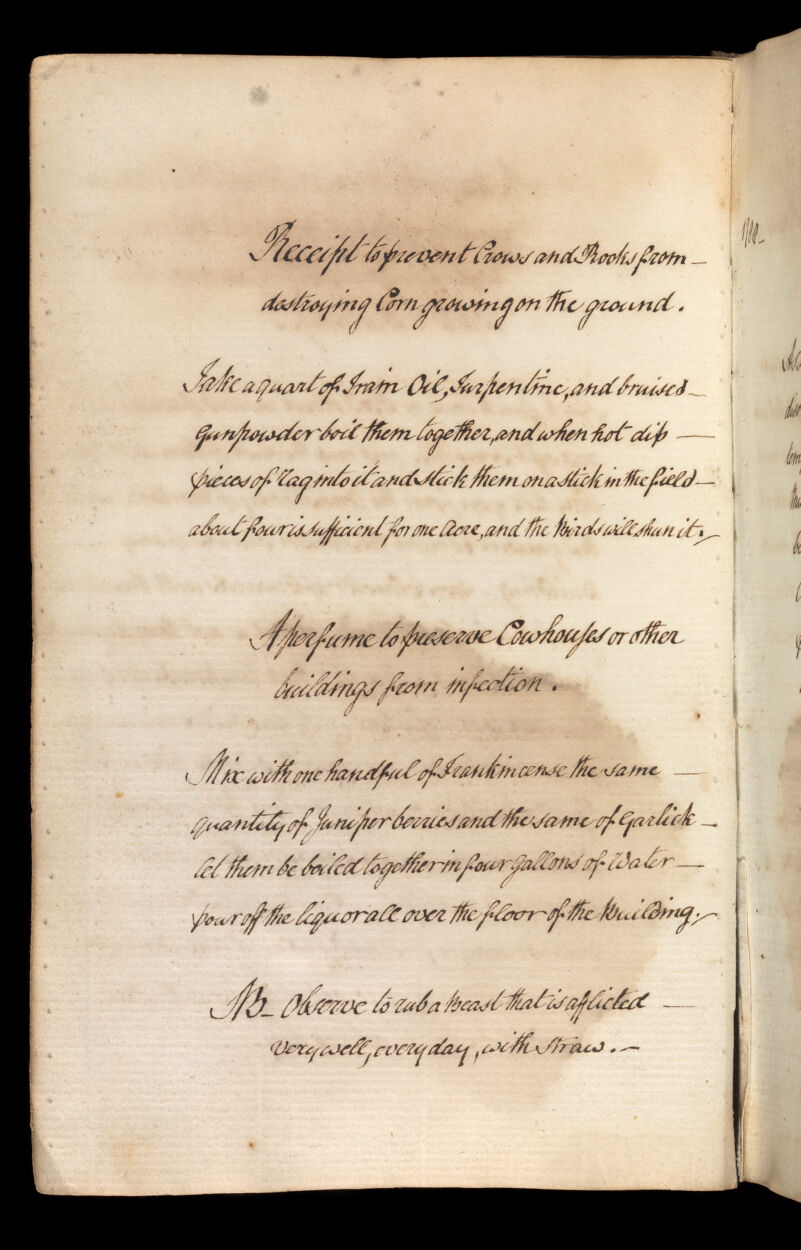 Receipt to prevent Crows and Rooks from —
destroying Corn growing on the ground.
Take a quart of Train Oil, Turpentine, and bruised —
Gunpowder boil them together, and when hot dip —
pieces of rag into it and stick them on a stick in the field —
about four is sufficient for one Acre, and the Birds will shun it. —
A perfume to preserve Cowhouses or other
buildings from infection.
Mix with one handful of Frankincense the same —
quantity of Juniper berries and the same of Garlick —
let them be boiled together in four Gallons of Water —
pour off the liquor all over the floor of the Building. —
NB — Observe to rub a Beast that is afflicted —
very well, every day, with Straw. —